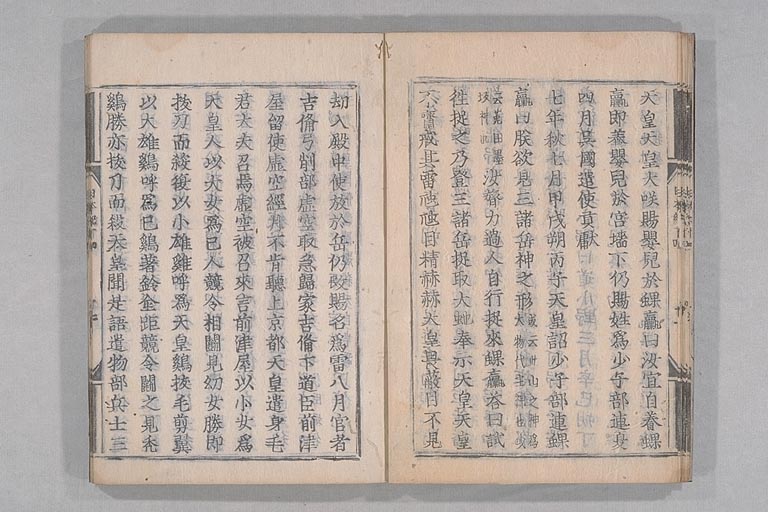 天皇天皇大咲賜嬰兒於蜾蠃曰汝宜自養蜾
蠃即養嬰兒於宮墻下仍賜姓為少子部連
四月吳國遣使貢獻
七年秋七月甲戌朔丙子天皇詔少子部連蜾
蠃曰朕欲見三諸岳神之形
汝膂力過人自行捉來蜾蠃答曰試
往捉之乃登三諸岳捉取大虵奉示天皇天皇
不齋戒其雷虺虺目精赫赫天皇畏蔽目不見
却入殿中使放於岳仍改賜名為雷八月官者
吉備弓削部虛空取急歸家吉備下道臣前津
屋留使虛空經月不肯聽上京都天皇遣身毛
君丈夫召焉虛空被召來言前津屋以小女為
天皇人以大女為已人競令相鬪見幼女勝即
拔刀而殺復以小雄雞呼為天皇鷄拔毛剪翼
以大雄鷄呼為已鷄著鈴金距競令鬪之見禿
鷄勝亦拔刀而殺天皇聞是語遣物部兵士三